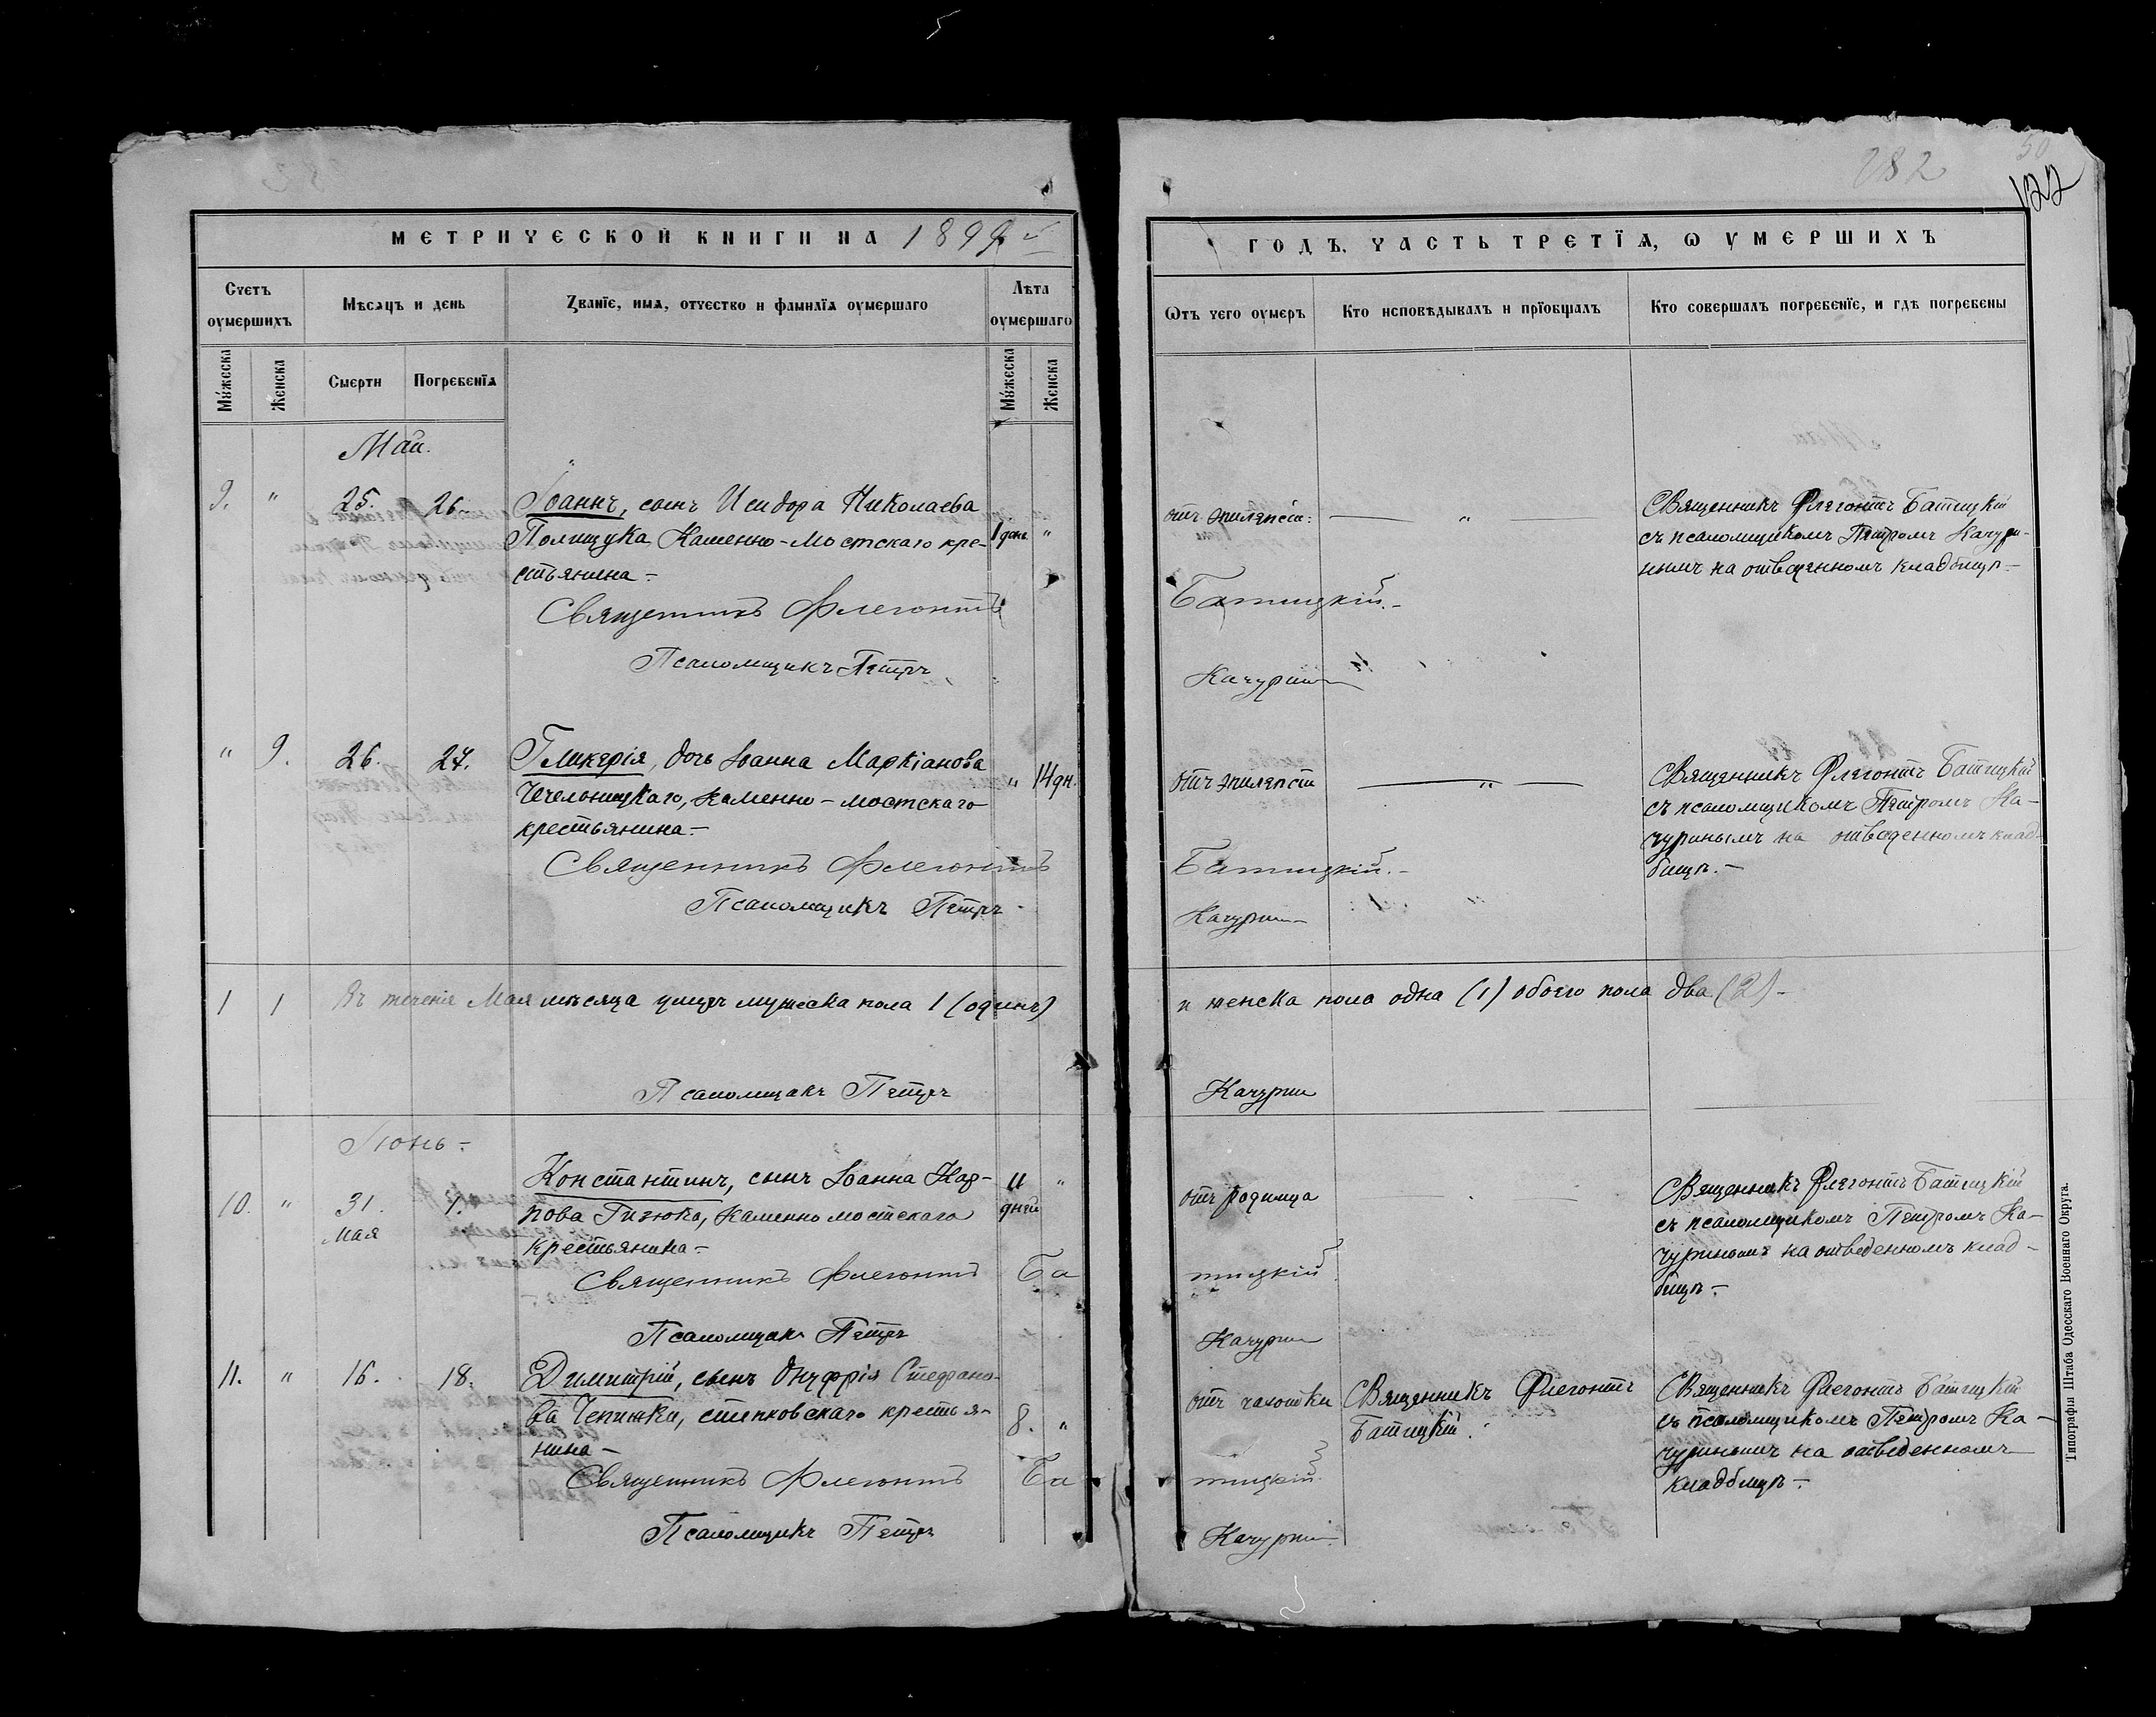 282
50
122
МЕТРИЧЕСКОЙ КНИГИ НА 1899 й
ГОДЪ, ЧАСТЬ ТРЕТЇѦ, Ѡ ОУМЕРШИХЪ
Счетъ оумершихъ
Мѣсѧцъ и день
Званїе, имѧ, отчество и фамилїѧ оумершаго
Лѣта оумершаго
Ѿтъ чего оумеръ
Кто исповѣдывалъ и прїобщалъ
Кто совершалъ погребенїе, и гдѣ погребены
Мужеска
Женска
Смерти
Погребенїѧ
Мужеска
Женска
Май.
9. " 25. 26. Іоаннъ, сынъ Исидора Николаева
Полищука, Каменно-Мостскаго кре-
стьянина-
1 день "
отъ эпилепсіи: — " —
Священникъ Флегонтъ Батицкій
съ псаломщикомъ Петромъ Качури-
нымъ на отведенномъ кладбищѣ.-
Священникъ Флегонтъ Батицкій.-
Псаломщикъ Петръ Качуринъ
" 9. 26. 27. Гликерія, дочь Іоанна Маркіанова
Чечельницкаго, Каменно-мостскаго
крестьянина-
" 14 дн.
отъ эпилепсіи — " —
Священникъ Флегонтъ Батицкій
съ псаломщикомъ Петромъ Ка-
чуринымъ на отведенномъ клад-
бищѣ.-
Священникъ Флегонтъ Батицкій.-
Псаломщикъ Петръ Качуринъ
1 1 Въ теченіе Мая мѣсяца умеръ мужеска пола 1 (одинъ) и женска пола одна (1) обоего пола два (2)-
Псаломщикъ Петръ Качуринъ
Іюнь-
10. " 31. мая 1. Константинъ, сынъ Іоанна Кар-
пова Гизюка, Каменномостскаго
крестьянина-
11 дней "
отъ родимца
Священникъ Флегонтъ Батицкій
съ псаломщикомъ Петромъ Ка-
чуринымъ на отведенномъ клад-
бищѣ-
Священникъ Флегонтъ Батицкій
Псаломщикъ Петръ Качуринъ
11. " 16. 18. Димитрій, сынъ Онуфрія Стефано-
ва Чепижки, степковскаго крестья-
нина-
8. "
отъ чахотки
Священникъ Флегонтъ
Батицкій.
Священникъ Флегонтъ Батицкій
съ псаломщикомъ Петромъ Ка-
чуринымъ на отведенномъ
кладбищѣ-
Священникъ Флегонтъ Батицкій
Псаломщикъ Петръ Качуринъ
Типографія Штаба Одесскаго Военнаго Округа.